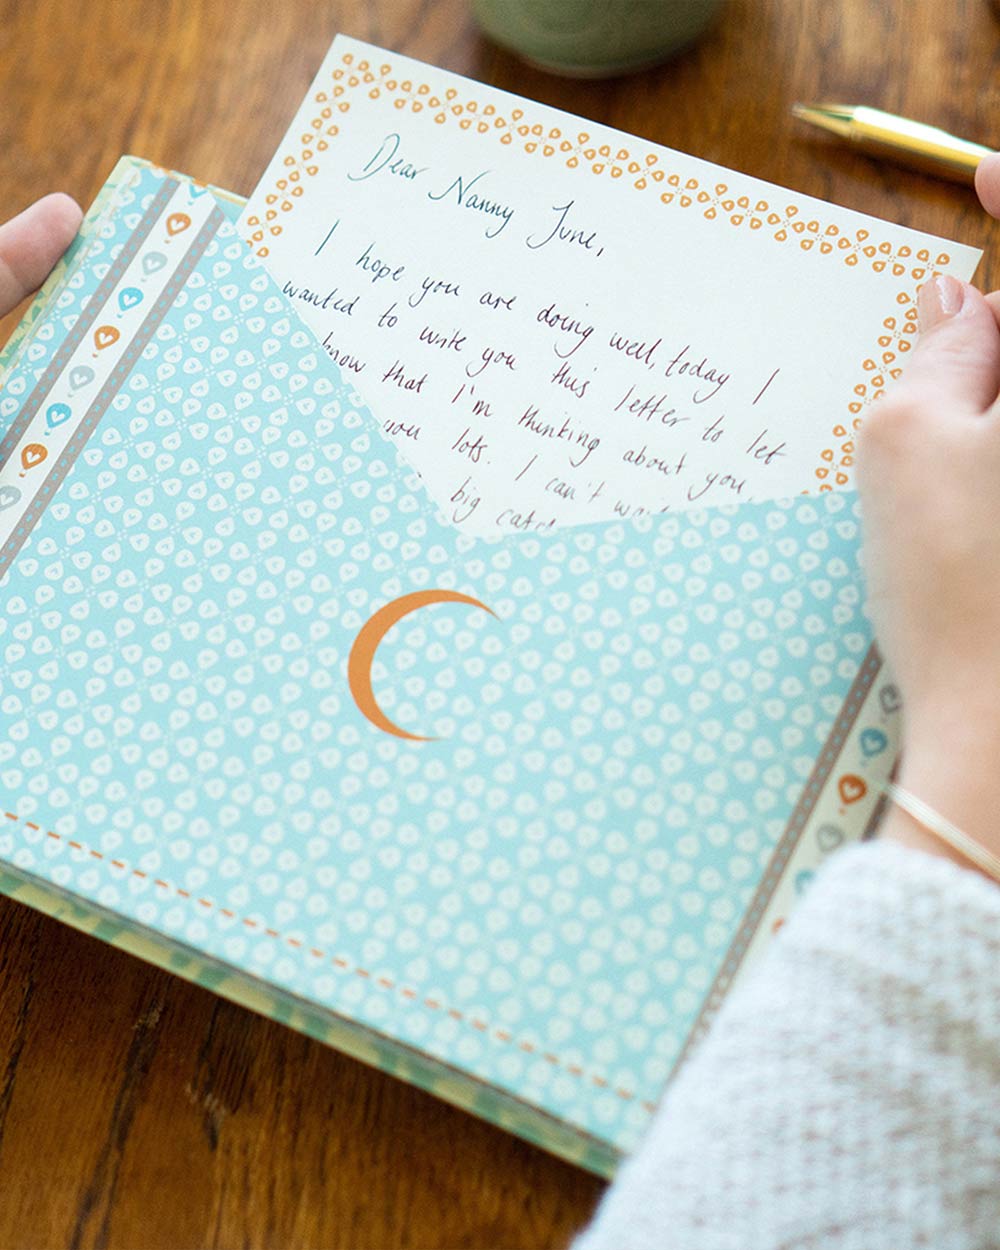 Dear Nanny June,
I hope you are doing well, today I
wanted to write you this letter to let
know that I'm thinking about you
you lots. I can't wait
big catch